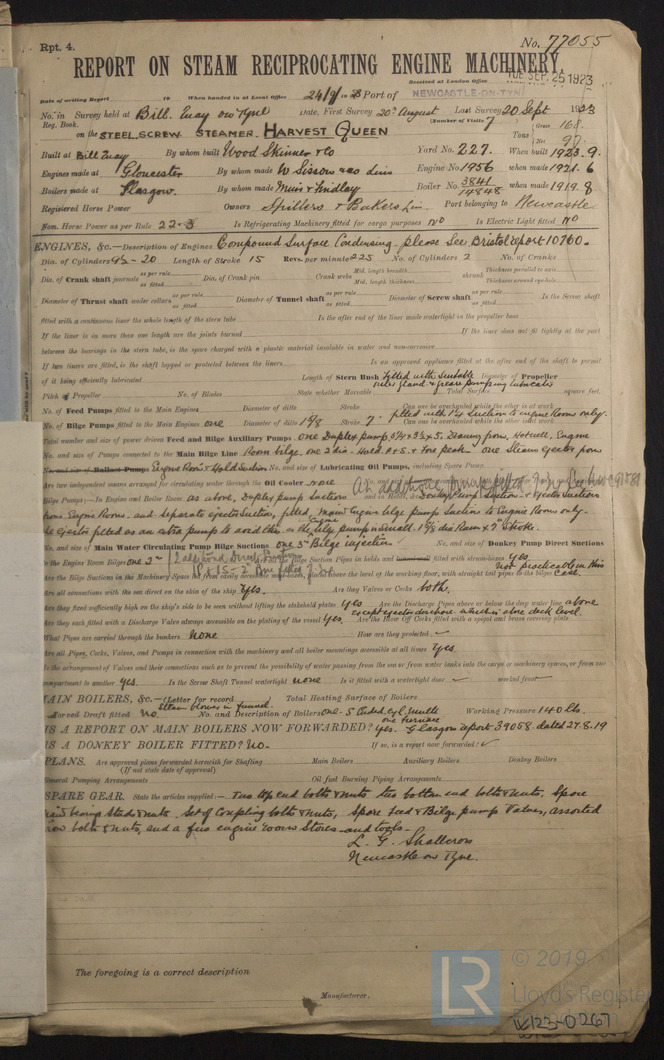 Rpt. 4.
No. 77055
REPORT ON STEAM RECIPROCATING ENGINE MACHINERY.
Received at London Office TUE. SEP. 25 1923
Date of writing Report 19 When handed in at Local Office 24/9/1923 Port of NEWCASTLE-ON-TYNE
No. in Survey held at Bill Quay on Tyne Date, First Survey 20th August Last Survey 20 Sept 1923
Reg. Book. (Number of Visits 7
on the STEEL SCREW STEAMER HARVEST QUEEN Tons Gross 168. Net 97
Built at Bill Quay By whom built Wood Skinner & Co Yard No. 227. When built 1923.9.
Engines made at Gloucester By whom made W Sisson & Co Lim Engine No. 1956 when made 1921.6
Boilers made at Glasgow. By whom made Muir & Findlay Boiler No. 3841 14848 when made 1919.8
Registered Horse Power Owners Spillers & Bakers Lim Port belonging to Newcastle
Nom. Horse Power as per Rule 22.3 Is Refrigerating Machinery fitted for cargo purposes NO Is Electric Light fitted NO
ENGINES, &c.—Description of Engines Compound Surface Condensing. please See Bristol report 10760.
Dia. of Cylinders 9½ - 20 Length of Stroke 15 Revs. per minute 225 No. of Cylinders 2 No. of Cranks
Dia. of Crank shaft journals as per rule as fitted Dia. of Crank pin Crank webs Mid. length breadth Mid. length thickness shrunk Thickness parallel to axis Thickness around eye-hole
Diameter of Thrust shaft under collars as per rule as fitted Diameter of Tunnel shaft as per rule as fitted Diameter of Screw shaft as per rule as fitted Is the Screw shaft
fitted with a continuous liner the whole length of the stern tube Is the after end of the liner made watertight in the propeller boss
If the liner is in more than one length are the joints burned If the liner does not fit tightly at the part
between the bearings in the stern tube, is the space charged with a plastic material insoluble in water and non-corrosive
If two liners are fitted, is the shaft lapped or protected between the liners Is an approved appliance fitted at the after end of the shaft to permit
of it being efficiently lubricated Length of Stern Bush Fitted with suitable Diameter of Propeller
Pitch of Propeller No. of Blades State whether Moveable Total Surface square feet.
No. of Feed Pumps fitted to the Main Engines Diameter of ditto Stroke Can one be overhauled while the other is at work
No. of Bilge Pumps fitted to the Main Engines one Diameter of ditto 1⅞ Stroke 7" Can one be overhauled while the other is at work
fitted with suction to engine Room only.
Total number and size of power driven Feed and Bilge Auxiliary Pumps one Duplex pump, Drawing from, Hotwell, Engine
No. and size of Pumps connected to the Main Bilge Line Room bilge, one 2 dia. Hold P & S. & Fore peak. one Steam ejector from
Engine Room & Hold Suction No. and size of Lubricating Oil Pumps, including Spare Pump
Are two independent means arranged for circulating water through the Oil Cooler None
Bilge Pumps;—In Engine and Boiler Room as above, Duplex pump Suction and in Holds, &c. Donkey Pump Suction & Ejector Suctions
from Engine Room. and Separate ejector Suction, fitted, Main Engine bilge pump Suction to Engine Room only.
No. and size of Main Water Circulating Pump Bilge Suctions one 3" Bilge injection No. and size of Donkey Pump Direct Suctions
to the Engine Room Bilges one 2" Bilge Suction Pipes in holds and fitted with strum-boxes yes
Are the Bilge Suctions in the Machinery Space above the level of the working floor, with straight tail pipes to the bilges Not practicable in this case.
Are all connections with the sea direct on the skin of the ship Yes. Are they Valves or Cocks both.
Are they fixed sufficiently high on the ship's side to be seen without lifting the stokehold plates Yes Are the Discharge Pipes above or below the deep water line above
except ejector discharge which is above deck level.
Are they each fitted with a Discharge Valve always accessible on the plating of the vessel Yes. Are the Blow Off Cocks fitted with a spigot and brass covering plate
What Pipes are carried through the bunkers None How are they protected
Are all Pipes, Cocks, Valves, and Pumps in connection with the machinery and all boiler mountings accessible at all times Yes.
Is the arrangement of Valves and their connections such as to prevent the possibility of water passing from the sea or from water tanks into the cargo or machinery spaces, or from one
compartment to another yes. Is the Screw Shaft Tunnel watertight none Is it fitted with a watertight door worked from
MAIN BOILERS, &c.—(Letter for record Total Heating Surface of Boilers
Steam blower in funnel.
Forced Draft fitted No. No. and Description of Boilers one- S. Ended cyl. multi. one furnace Working Pressure 140 lbs.
IS A REPORT ON MAIN BOILERS NOW FORWARDED? yes. Glasgow report 39058. dated 27.8.19
IS A DONKEY BOILER FITTED? No. If so, is a report now forwarded?
PLANS. Are approved plans forwarded herewith for Shafting Main Boilers Auxiliary Boilers Donkey Boilers
(If not state date of approval)
General Pumping Arrangements Oil fuel Burning Piping Arrangements
SPARE GEAR. State the articles supplied:— Two top end bolts & nuts two bottom end bolts & nuts, Spare
main bearing studs & nuts. Set of Coupling bolts & nuts, Spare Feed & Bilge pump Valves, assorted
iron bolts & nuts, and a few engine room Stores and tools.
L. G. Shallcross
Newcastle on Tyne.
The foregoing is a correct description
Manufacturer.
LR
© 2019
Lloyd's Register
W123-0267